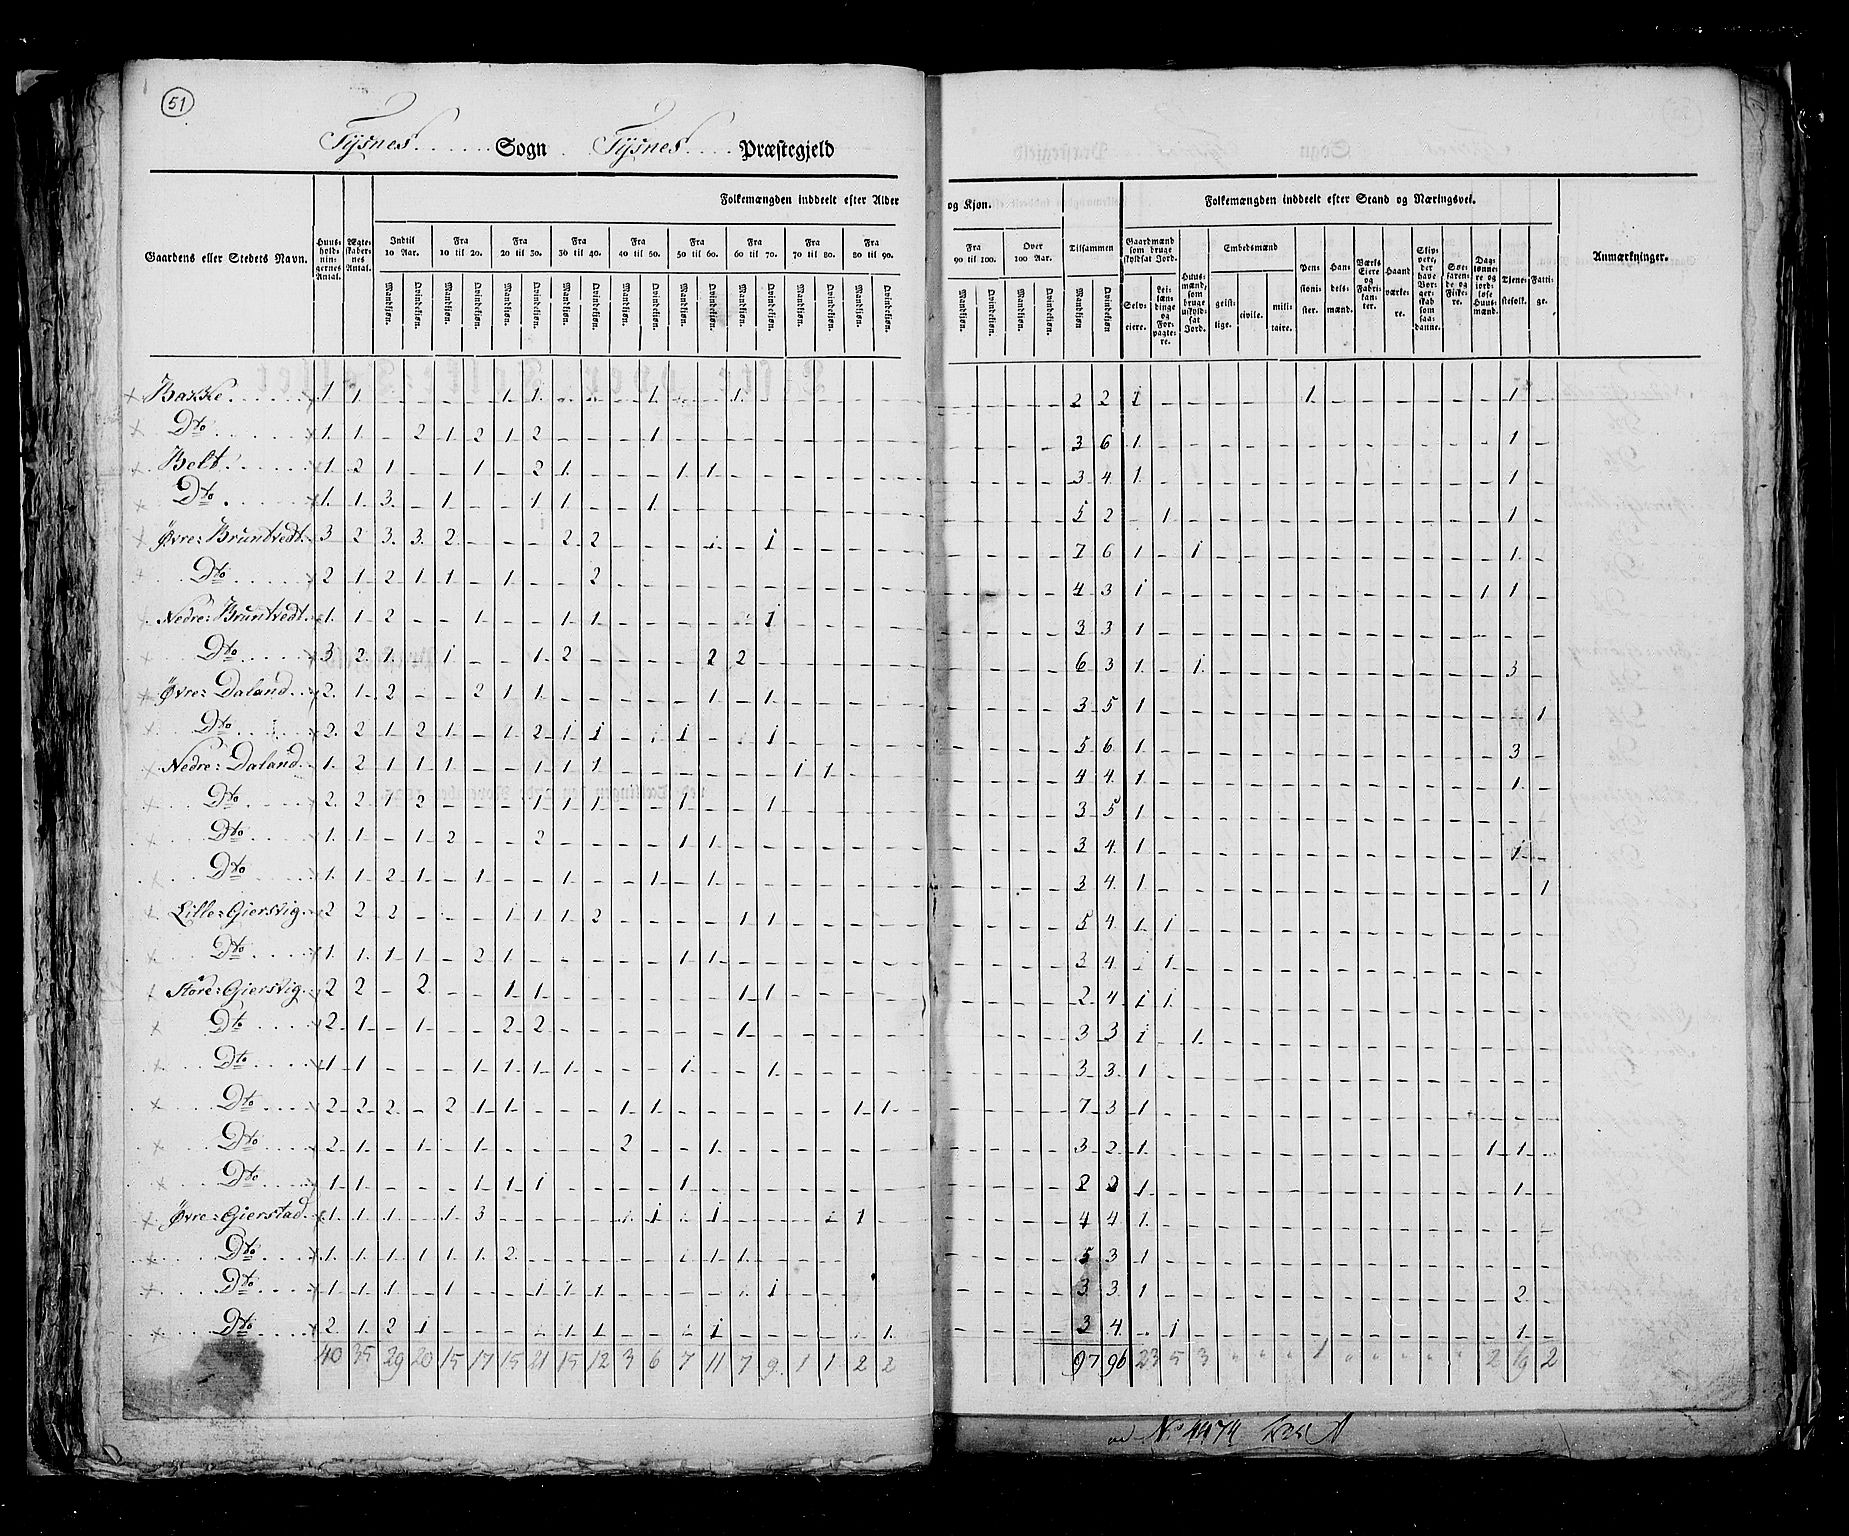 51
Tysnes Sogn Tysnes Præstegjeld
Folkemængden inddeelt efter Alder og Kjøn.
Folkemængden inddeelt efter Stand og Næringsvei.
Gaardens eller Stedets Navn.
Huusholdningernes Antal.
Ægteskabernes Antal.
Indtil 10 Aar.
Fra 10 til 20.
Fra 20 til 30.
Fra 30 til 40.
Fra 40 til 50.
Fra 50 til 60.
Fra 60 til 70.
Fra 70 til 80.
Fra 80 til 90.
Fra 90 til 100.
Over 100 Aar.
Tilsammen
Mandkjøn. Qvindekjøn.
Gaardmænd som bruge skyldsat Jord.
Selveiere.
Leilændinge og Forpagtere.
Huusmænd, som bruge uskyldsat Jord.
Embedsmænd
geistlige.
civile.
militaire.
Pensionister.
Handelsmænd.
Værks Eiere og Fabrikanter.
Haandværkere.
Skippere, der have Borgerskab som saadanne.
Søefarende og Fiskere.
Daglønnere og jordløse Huusmænd.
Tjenestefolk.
Fattige.
Anmærkninger.
Bakke. 1 1 - - - - 1 1 - - - 1 - - 1 2 2 1 1 1
Dto 1 1 - 2 1 2 1 2 - - - 1 3 6 1 1
Belt. 1 2 1 - - 1 - 2 1 - - - 1 1 3 4 1 1
Dto 1 1 3 - 1 - - 1 1 - - 1 5 2 - 1 1
Øvre: Bruntvedt. 3 2 3 3 2 - - - 2 2 - - - 1 - 1 7 6 1 - 1 1
Dto 2 1 2 1 1 - 1 - - 2 4 3 1 1 1
Nedre: Bruntvedt. 1 1 2 - - 1 - - 1 1 - - - - - 1 3 3 1
Dto 3 2 1 - 1 - - 1 2 - - - - 2 2 6 3 1 - 1 3
Øvre: Daland. 2 1 2 - - 2 1 1 - - - - - 1 - 1 3 5 1 1
Dto 2 2 1 2 1 - 1 2 1 1 - - 1 - - 1 5 6 1 3
Nedre: Daland. 1 2 1 1 1 - - 1 1 1 - - - - - - 1 1 4 4 1 1
Dto 2 2 1 2 - - - 1 1 1 - - 1 - - 1 3 5 1
Dto 1 1 - 1 2 - - 2 - - - - 1 1 3 4 1 1
Dto 1 1 2 1 - 1 - - 1 - - 1 - 1 3 4 1 1
Lille: Gierstvig. 2 2 2 - - - 1 1 1 2 - - - - 1 1 5 4 1 1
Dto 1 1 1 1 - 2 1 - - - - - 1 1 3 4 - 1
Store: Gierstvig. 2 2 - 2 - - 1 1 - - - - - - 1 1 2 4 1 1
Dto 2 1 - 1 - - 2 2 - - - - - - 1 3 3 1 - 1
Dto 1 1 - - - 1 1 1 1 - - - 1 - - 1 3 3 1
Dto 2 2 2 - 2 1 1 - - - 1 1 - - - - - - 1 1 7 3 1
Dto 2 1 - 1 - 1 - - - - 2 - - 1 3 2 1 1 1
Dto 1 1 - - - 1 1 1 - - - - 1 2 2 1 1
Øvre: Gierstad. 1 1 1 - 1 3 - - - - 1 1 - 1 - - - - 1 4 4 1
Dto 1 1 1 1 1 1 2 - - - - - - 1 1 5 3 1
Dto 1 1 1 - 1 - - 1 1 1 - - - - - 1 3 3 1 2
Dto 2 1 2 1 - - - - 1 1 - - - 1 - - - - - 1 3 4 - 1 1
40 35 29 20 15 17 15 21 15 12 3 6 7 11 7 9 1 1 2 2 97 96 23 5 3 1 2 19 2
No 4474